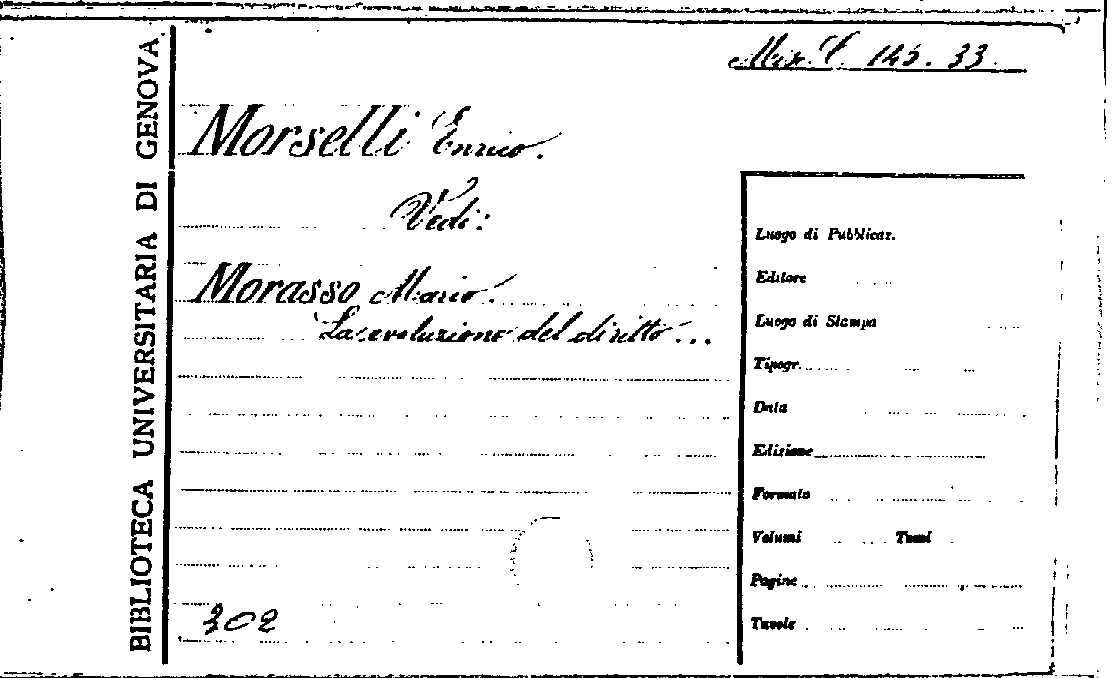 BIBLIOTECA UNIVERSITARIA DI GENOVA
Misc. C. 145. 33.
Morselli Enrico.
Vedi:
Morasso Mario.
La evoluzione del diritto...
302
Luogo di Pubblicaz.
Editore
Luogo di Stampa
Tipogr.
Data
Edizione
Formato
Volumi Tomi
Pagine
Tavole